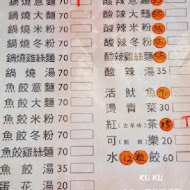 鍋燒大麵 70
鍋燒米粉 70
鍋燒冬粉 70
鍋燒雞絲麵 70
鍋燒湯 35
魚餃意麵 70
魚餃大麵 70
魚餃米粉 70
魚餃冬粉 70
魚餃雞絲麵 70
魚餃湯
蛋花湯 20
酸辣大麵
酸辣米粉
酸辣冬粉
酸辣雞絲麵
酸辣湯 35
活魷魚
燙青菜 30
紅(古早味)茶
可樂 20
水餃 60
KU KU